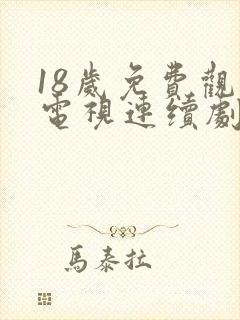 18歲免費觀
電視連續劇
馬泰拉